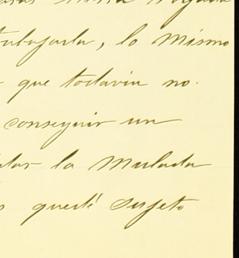 trabajarla, lo mismo
que todavia no.
conseguir un
la Mulata
quedé sugeto